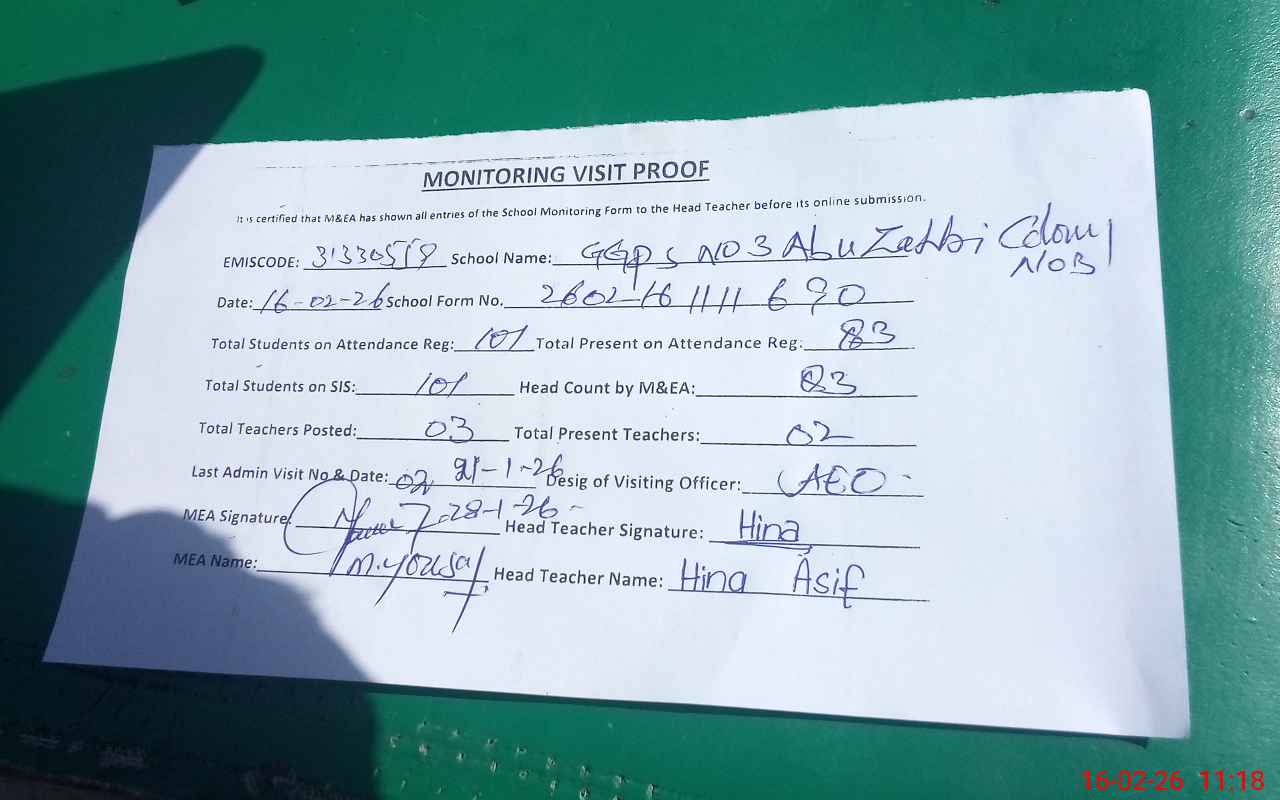 MONITORING VISIT PROOF
It is certified that M&EA has shown all entries of the School Monitoring Form to the Head Teacher before its online submission.
EMISCODE: 31330519 School Name: GGPS NO 3 Abu Zahbi Colony
NO3
Date: 16-02-26 School Form No. 2602161111690
Total Students on Attendance Reg: 101 Total Present on Attendance Reg: 83
Total Students on SIS: 101 Head Count by M&EA: 83
Total Teachers Posted: 03 Total Present Teachers: 02
Last Admin Visit No & Date: 02 21-1-26 Desig of Visiting Officer: AEO
MEA Signature: 28-1-26 Head Teacher Signature: Hina
MEA Name: M. Yousaf Head Teacher Name: Hina Asif
16-02-26 11:18